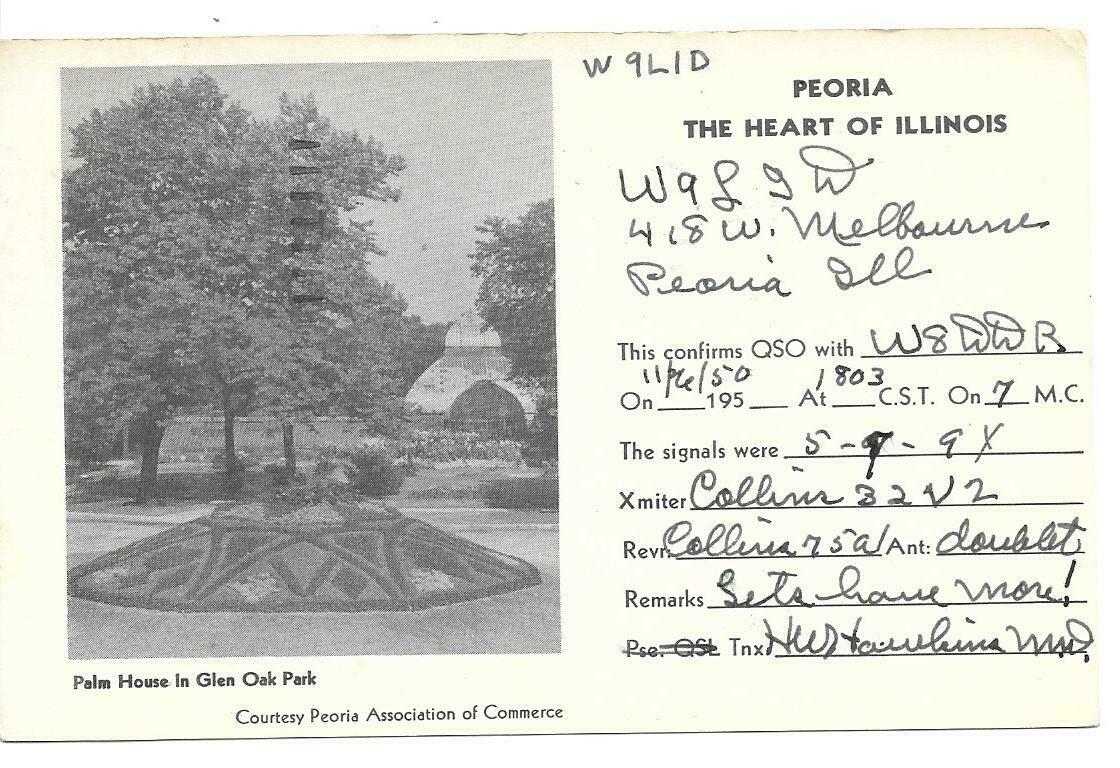 W9LID
PEORIA
THE HEART OF ILLINOIS
W9LID
418 W. Melbourne
Peoria Ill
This confirms QSO with W8DDR
On 11/6/50 195 At 1803 C.S.T. On 7 M.C.
The signals were 5-9-9X
Xmiter Collins 32V2
Revr. Collins 75a1 Ant: doublet
Remarks Lets have more!
Pse. QSL Tnx HW Hawkins M.D.
Palm House In Glen Oak Park
Courtesy Peoria Association of Commerce